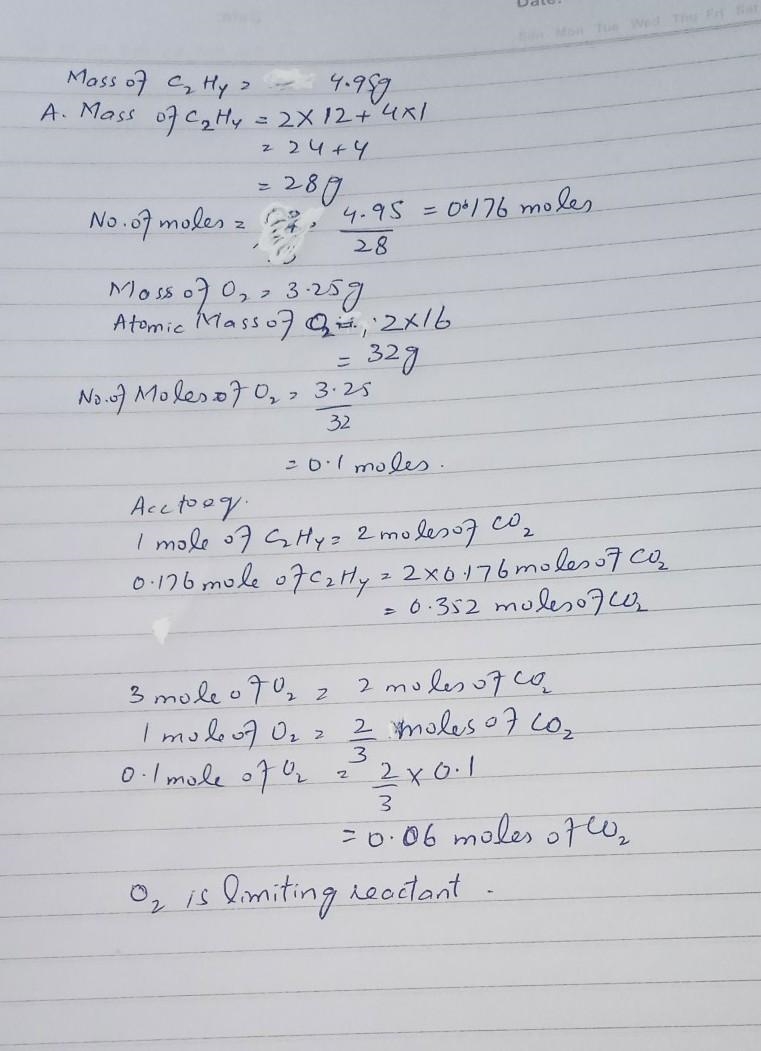 Date:
Sun Mon Tue Wed Thu Fri Sat
Mass of C₂H₄ = 4.95g
A. Mass of C₂H₄ = 2×12+4×1
= 24+4
= 28g
No. of moles = 4.95/28 = 0.176 moles
Mass of O₂ = 3.25g
Atomic Mass of O₂ = 2×16
= 32g
No. of Moles of O₂ = 3.25/32
= 0.1 moles.
Acc to eq.
1 mole of C₂H₄ = 2 moles of CO₂
0.176 mole of C₂H₄ = 2×0.176 moles of CO₂
= 0.352 moles of CO₂
3 mole of O₂ = 2 moles of CO₂
1 mole of O₂ = 2/3 moles of CO₂
0.1 mole of O₂ = 2/3 × 0.1
= 0.06 moles of CO₂
O₂ is limiting reactant.